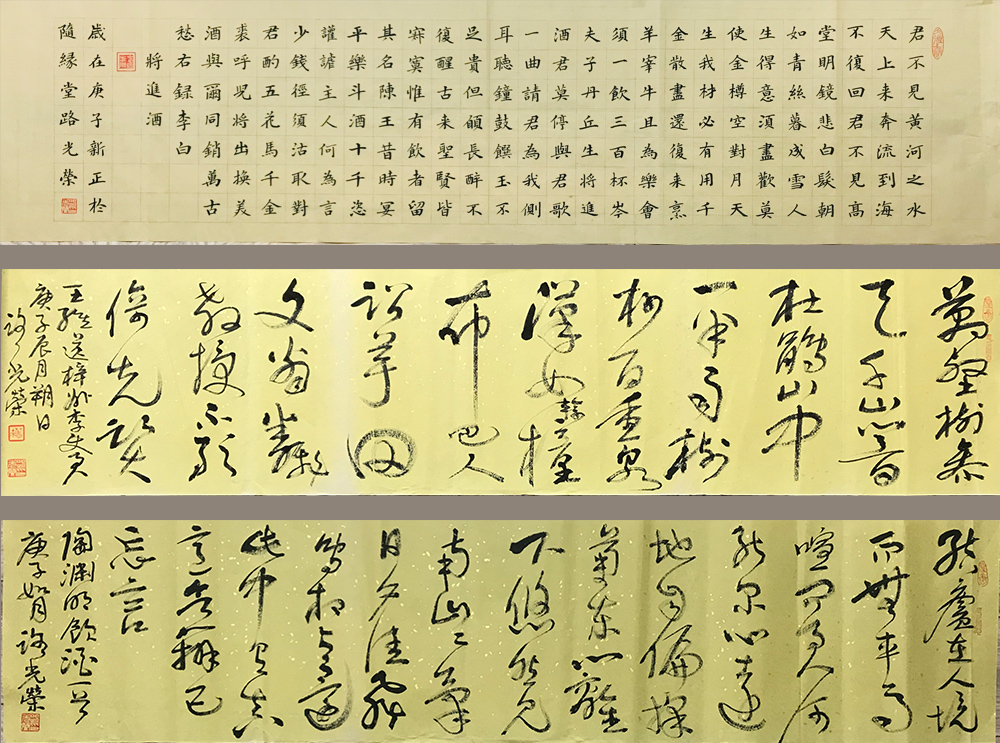 君不見黃河之水
天上来奔流到海
不復回君不見高
堂明鏡悲白髮朝
如青絲暮成雪人
生得意須盡歡莫
使金樽空對月天
生我材必有用千
金散盡還復来烹
羊宰牛且為樂會
須一飲三百杯岑
夫子丹丘生將進
酒君莫停與君歌
一曲請君為我側
耳聽鐘鼓饌玉不
足貴但願長醉不
復醒古来聖賢皆
寂寞惟有飲者留
其名陳王昔時宴
平樂斗酒十千恣
讙謔主人何為言
少錢徑須沽取對
君酌五花馬千金
裘呼児將出換美
酒與爾同銷萬古
愁右録李白
將進酒
歲在庚子新正於
隨緣堂路光榮
萬壑樹參
天千山響
杜鵑山中
一半雨樹
杪百重泉
漢女輸橦
布巴人
訟芋田
文翁翻
教授不敢
倚先賢
王維送梓州李使君
庚子辰月朔日
路光榮
結廬在人境
而無車馬
喧問君何
能尔心遠
地自偏採
菊東籬
下悠然見
南山山氣
日夕佳飛
鳥相與還
此中有真
意欲辨已
忘言
陶淵明飲酒一首
庚子如月路光榮